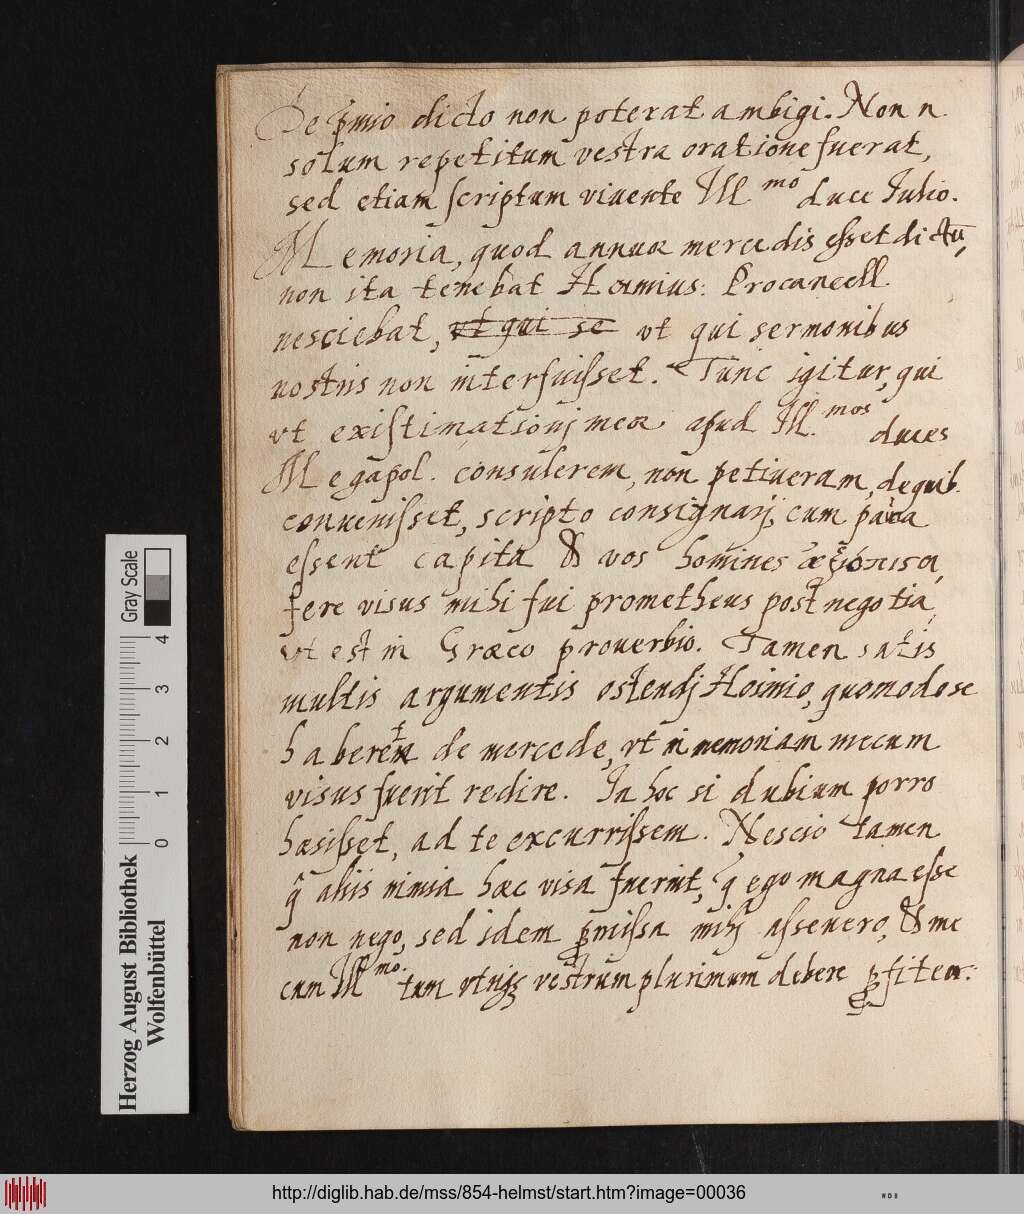 De p̄mio dicto non poterat ambigi. Non n.
solum repetitum vestra oratione fuerat,
sed etiam scriptum viuente Ill.mo duce Iulio.
Memoria, quod annuæ mercedis esset dictū,
non ita tenebat Hœmius: Procancell.
nesciebat, vt qui se vt qui sermonibus
nostris non interfuisset. Tunc igitur, qui
vt existimationj meæ apud Ill.mos duces
Megapol. consulerem, non petiueram, de quib.
conuenisset, scripto consignarj, cum pauca
essent capita & vos homines ἀξιόπιστα,
fere visus mihi fui prometheus post negotia,
vt est in Græco prouerbio. Tamen satis
multis argumentis ostendj Hoimio, quomodo se
haberet de mercede, vt in memoriam mecum
visus fuerit redire. In hoc si dubium porro
hæsisset, ad te excurrissem. Nescio tamen
q̄ aliis nimia hæc visa fuerint, q̄ ego magna esse
non nego, sed idem p̱missa mihj asseuero, & me
cum Ill.mo. tum vtriqꝫ vestrum plurimum debere ꝓfiteor.
Gray Scale
4
3
2
1
0
Herzog August Bibliothek
Wolfenbüttel
http://diglib.hab.de/mss/854-helmst/start.htm?image=00036